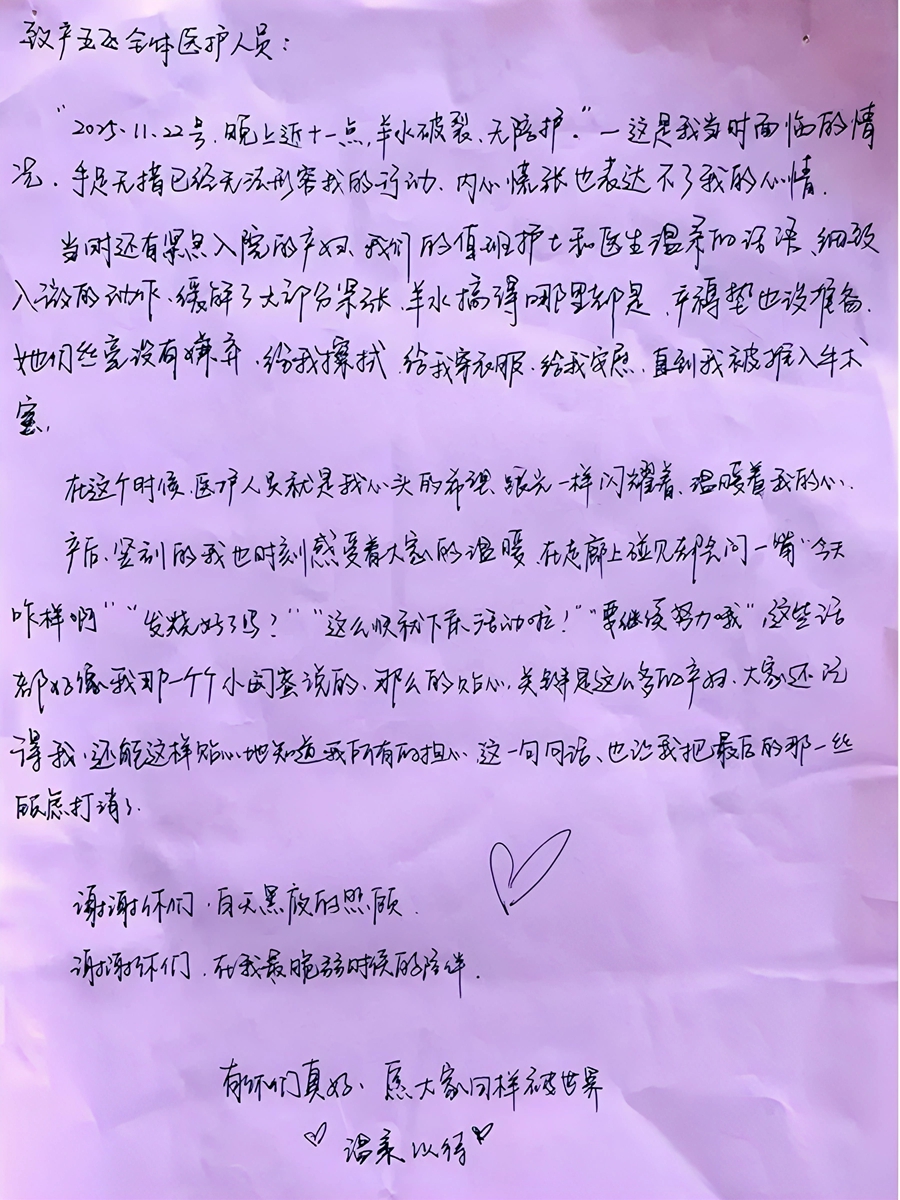 致产五区全体医护人员：
“2025.11.22号，晚上近十一点，羊水破裂、无陪护。”一这是我当时面临的情
况，手足无措已经无法形容我的行动、内心慌张也表达不了我的心情．
当时还有紧急入院的产妇、我们的值班护士和医生温柔的话语、细致
入微的动作、缓解了大部分紧张、羊水搞得哪里都是，产褥垫也没准备、
她们丝毫没有嫌弃．给我擦拭、给我穿衣服、给我安慰、直到我被推入手术
室，
在这个时候、医护人员就是我心头的希望、跟光一样闪耀着、温暖着我的心．
产后、坚刮的我也时刻感受着大家的温暖，在走廊上碰见都会问一嘴“今天
咋样啊”“发烧好了吗？”“这么快就下床活动啦！”“要继续努力哦”，这些话
都好像我那一个个小闺蜜说的、那么的贴心，关键是这么多的产妇、大家还记
得我、还能这样贴心地知道我所有的担心．这一句句话、也让我把最后的那一丝
顾虑打消了．
谢谢你们，白天黑夜的照顾．
谢谢你们，在我最脆弱时候的陪伴．
有你们真好、愿大家同样被世界
温柔以待